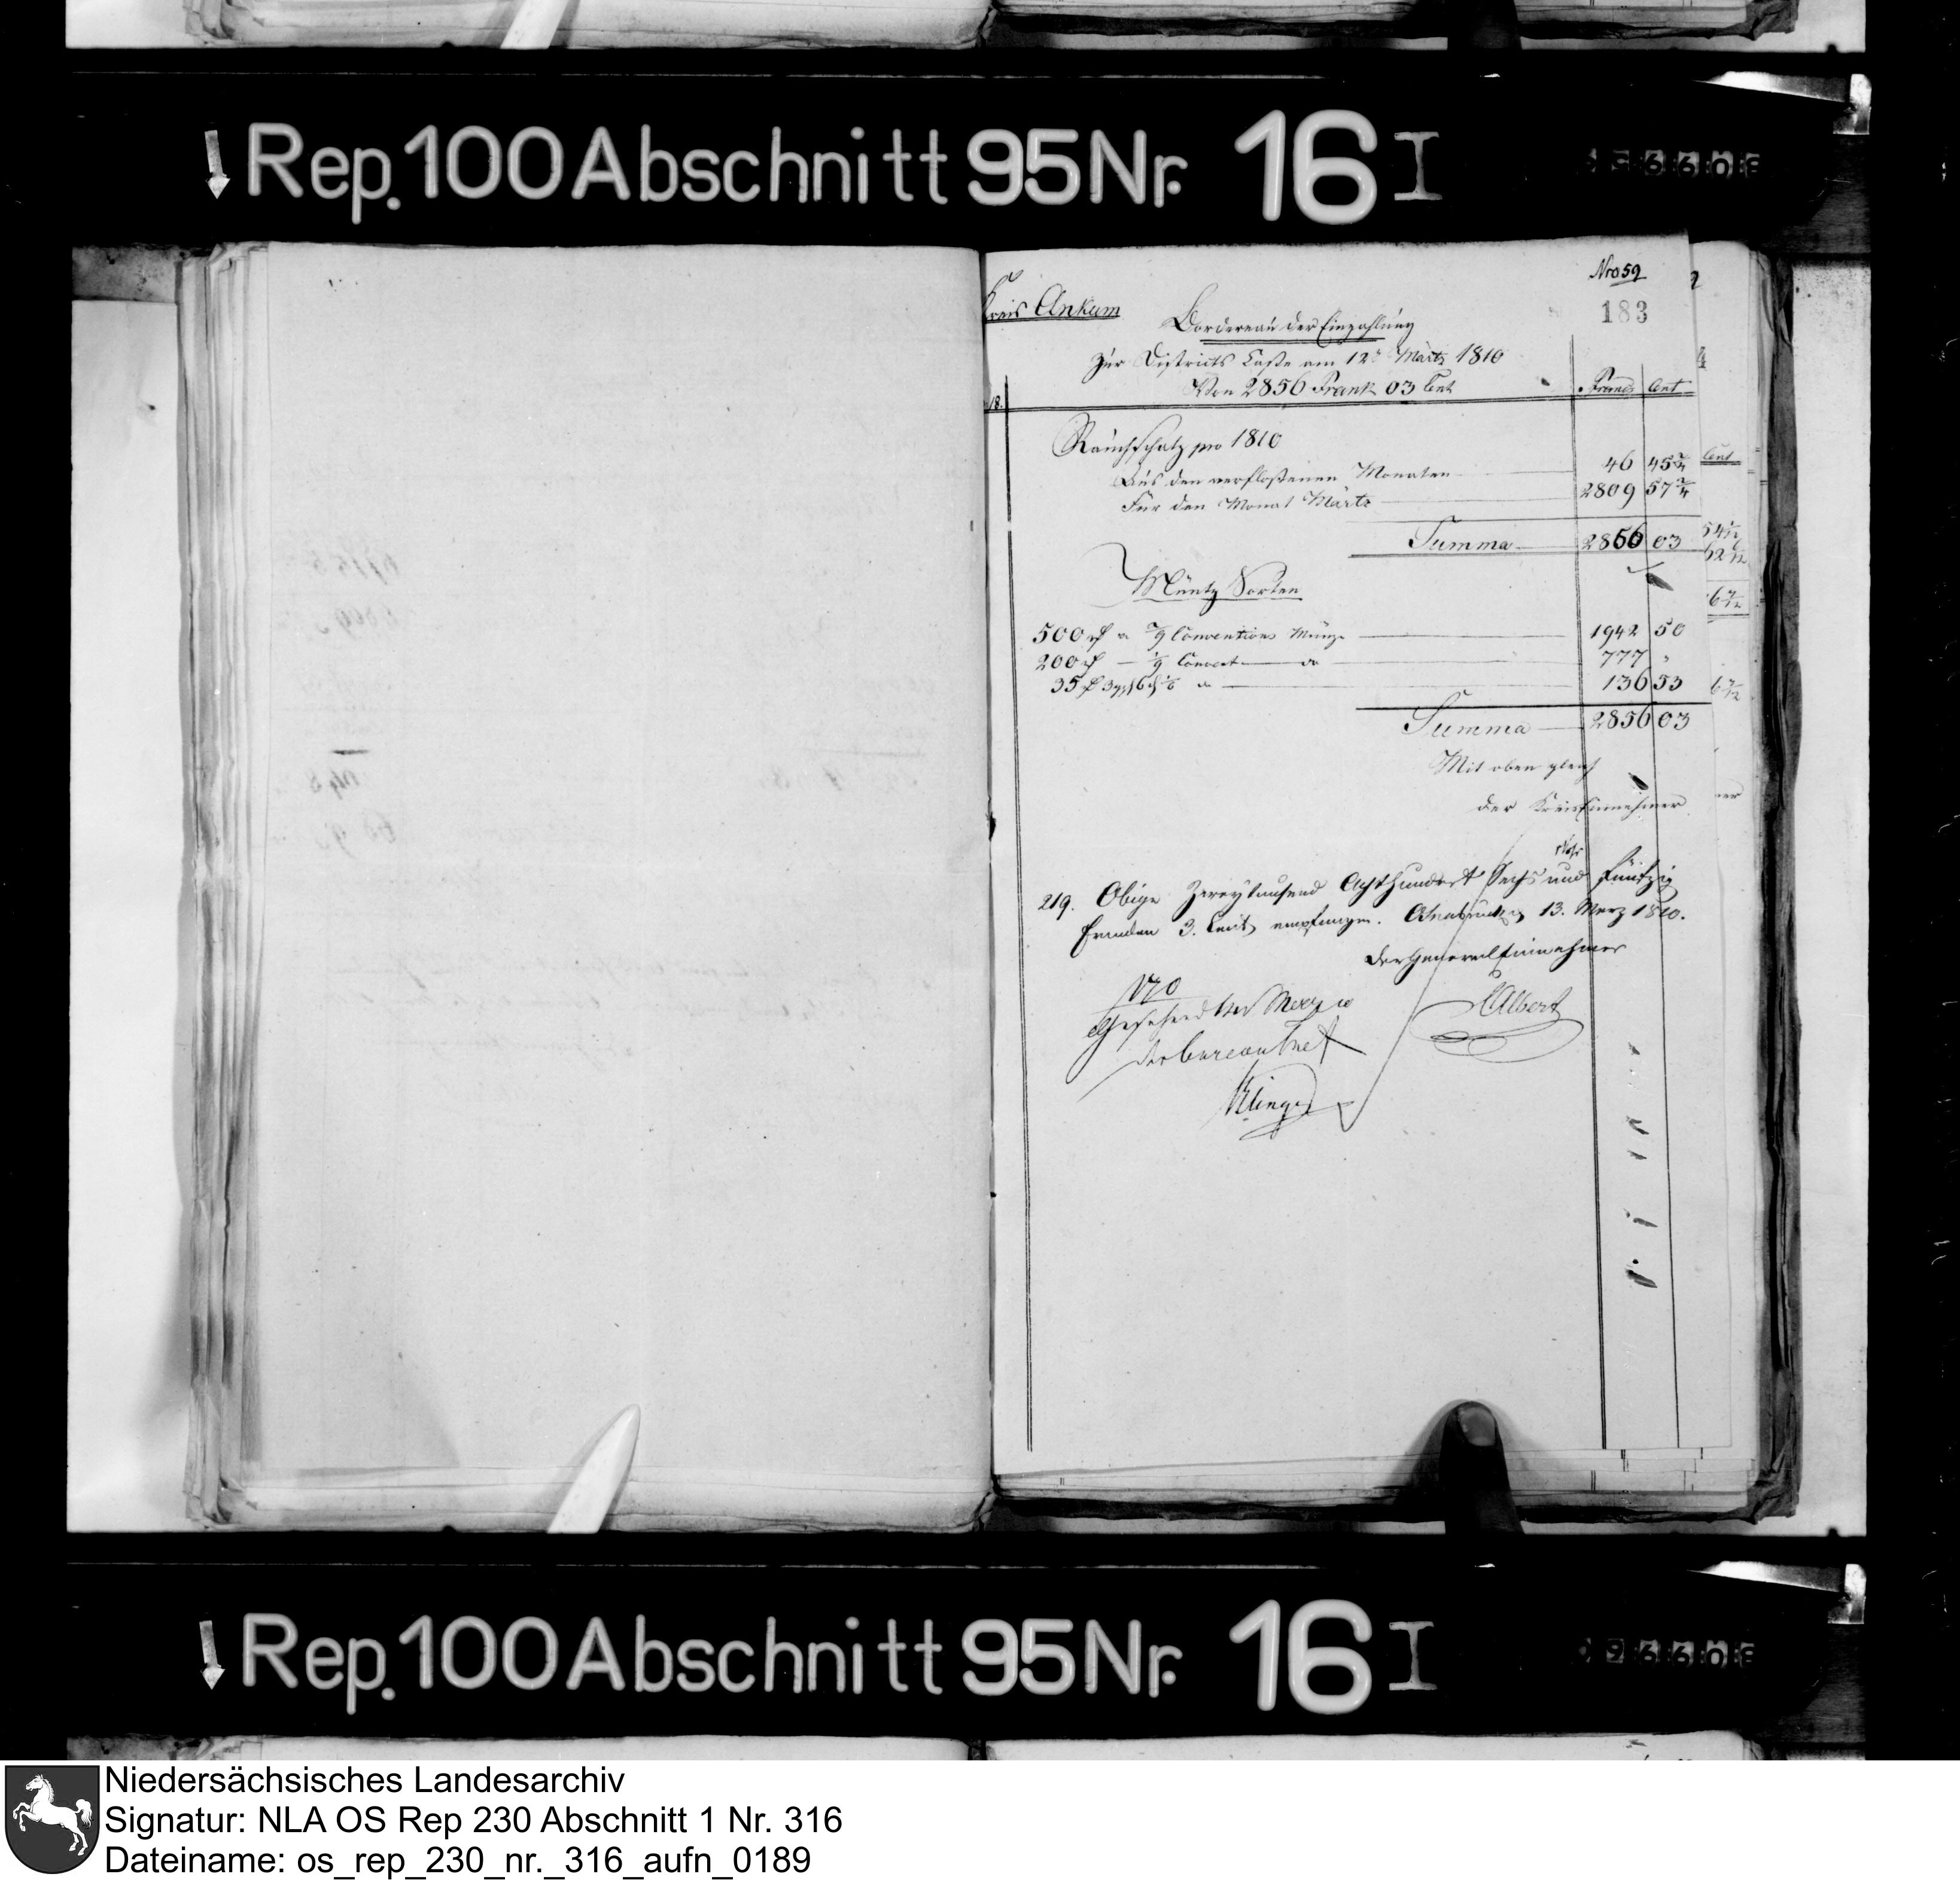 Rep. 100 Abschnitt 95 Nr. 16 I
Nro 59
183
Kreis Ankum
Bordereau der Einzahlung
zur Districts Casse am 12t Märtz 1810
Von 2856 Frank 03 Cent
Francs Cent
Rauchschatz pro 1810
Aus den verfloßenen Monaten 46 45 2/4
Für den Monat Märtz 2809 57 2/4
Summa 2856 03
Müntz Sorten
500 Conventions Münze 1942 50
200 Convent 777 "
35 136 53
Summa 2856 03
Mit oben gleich
der KreisEinnehmer
219. Obige Zweytausend Achthundert Sechs und Fünfzig
Franken 3. Cent empfangen. Osnabrück 13. Merz 1810.
Der General Einnehmer
Albert
der bureau Chef
Klinge
Rep. 100 Abschnitt 95 Nr. 16 I
Niedersächsisches Landesarchiv
Signatur: NLA OS Rep 230 Abschnitt 1 Nr. 316
Dateiname: os_rep_230_nr._316_aufn_0189